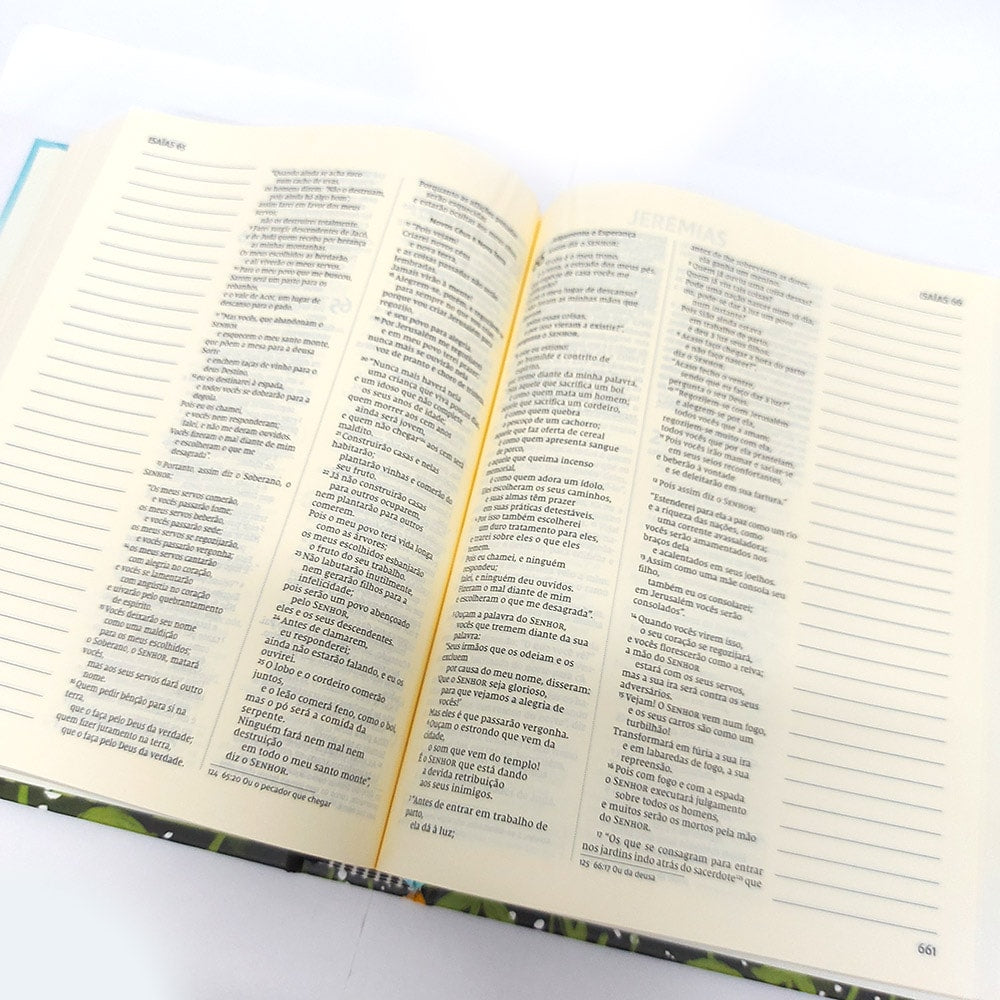 ISAÍAS 65
"Quando ainda se acha suco
num cacho de uvas,
os homens dizem: 'Não o destruam,
pois ainda há algo bom';
assim farei em favor dos meus
servos;
não os destruirei totalmente.
Farei surgir descendentes de Jacó,
e de Judá quem receba por herança
as minhas montanhas.
Os meus escolhidos as herdarão,
e ali viverão os meus servos.
Para o meu povo que me buscou,
Sarom será um pasto para os
rebanhos,
e o vale de Acor, um lugar de
descanso para o gado.
"Mas vocês, que abandonam o
SENHOR
e esquecem o meu santo monte,
que põem a mesa para a deusa
Sorte
e enchem taças de vinho para o
deus Destino,
eu os destinarei à espada,
e todos vocês se dobrarão para a
degola.
Pois eu os chamei,
e vocês nem responderam;
falei, e não me deram ouvidos.
Vocês fizeram o mal diante de mim
e escolheram o que me
desagrada".
13 Portanto, assim diz o Soberano, o
SENHOR:
"Os meus servos comerão,
e vocês passarão fome;
os meus servos beberão,
e vocês passarão sede;
os meus servos se regozijarão,
e vocês passarão vergonha;
14 os meus servos cantarão
com alegria no coração,
e vocês se lamentarão
com angústia no coração
e uivarão pelo quebrantamento
de espírito.
15 Vocês deixarão seu nome
como uma maldição
para os meus escolhidos;
o Soberano, o SENHOR, matará
vocês,
mas aos seus servos dará outro
nome.
16 Quem pedir bênção para si na
terra,
que o faça pelo Deus da verdade;
quem fizer juramento na terra,
que o faça pelo Deus da verdade.
Porquanto as aflições passadas
serão esquecidas
e estarão ocultas aos meus olhos.
Novos Céus e Nova Terra
17 "Pois vejam!
Criarei novos céus
e nova terra,
e as coisas passadas não serão
lembradas.
Jamais virão à mente!
18 Alegrem-se, porém, e regozijem-se
para sempre no que vou criar,
porque vou criar Jerusalém
para regozijo
e seu povo para alegria.
19 Por Jerusalém me regozijarei
e em meu povo terei prazer;
nunca mais se ouvirão nela
voz de pranto e choro de tristeza.
20 "Nunca mais haverá nela
uma criança que viva poucos dias,
e um idoso que não complete
os seus anos de idade;
quem morrer aos cem anos
ainda será jovem,
e quem não chegar124 aos cem será
maldito.
21 Construirão casas e nelas
habitarão;
plantarão vinhas e comerão do
seu fruto.
22 Já não construirão casas
para outros ocuparem,
nem plantarão para outros
comerem.
Pois o meu povo terá vida longa
como as árvores;
os meus escolhidos esbanjarão
o fruto do seu trabalho.
23 Não labutarão inutilmente,
nem gerarão filhos para a
infelicidade;
pois serão um povo abençoado
pelo SENHOR,
eles e os seus descendentes.
24 Antes de clamarem,
eu responderei;
ainda não estarão falando, e eu os
ouvirei.
25 O lobo e o cordeiro comerão
juntos,
e o leão comerá feno, como o boi,
mas o pó será a comida da
serpente.
Ninguém fará nem mal nem
destruição
em todo o meu santo monte",
diz o SENHOR.
124 65:20 Ou o pecador que chegar
JEREMIAS
ISAÍAS 66
Julgamento e Esperança
diz o SENHOR:
é o meu trono,
o estrado dos meus pés.
de casa vocês me
meu lugar de descanso?
as minhas mãos que
essas coisas,
isso vieram a existir?",
o SENHOR.
este eu estimo:
ao humilde e contrito de
espírito,
que treme diante da minha palavra.
Mas aquele que sacrifica um boi
é como quem mata um homem;
aquele que sacrifica um cordeiro,
é como quem quebra
o pescoço de um cachorro;
aquele que faz oferta de cereal
é como quem apresenta sangue
de porco,
e aquele que queima incenso
memorial,
é como quem adora um ídolo.
Eles escolheram os seus caminhos,
e suas almas têm prazer
em suas práticas detestáveis.
4 Por isso também escolherei
um duro tratamento para eles,
e trarei sobre eles o que eles
temem.
Pois eu chamei, e ninguém
respondeu;
falei, e ninguém deu ouvidos.
Fizeram o mal diante de mim
e escolheram o que me desagrada".
5 Ouçam a palavra do SENHOR,
vocês que tremem diante da sua
palavra:
"Seus irmãos que os odeiam e os
excluem
por causa do meu nome, disseram:
'Que o SENHOR seja glorioso,
para que vejamos a alegria de
vocês!'
Mas eles é que passarão vergonha.
6 Ouçam o estrondo que vem da
cidade,
o som que vem do templo!
É o SENHOR que está dando
a devida retribuição
aos seus inimigos.
7 "Antes de entrar em trabalho de
parto,
ela dá à luz;
antes de lhe sobrevirem as dores,
ela ganha um menino.
8 Quem já ouviu uma coisa dessas?
Quem já viu tais coisas?
Pode uma nação nascer num só dia,
ou, pode-se dar à luz um povo
num instante?
Pois Sião ainda estava
em trabalho de parto,
e deu à luz seus filhos.
9 Acaso faço chegar a hora do parto
e não faço nascer?",
diz o SENHOR.
"Acaso fecho o ventre,
sendo que eu faço dar à luz?",
pergunta o seu Deus.
10 "Regozijem-se com Jerusalém
e alegrem-se por ela,
todos vocês que a amam;
regozijem-se muito com ela,
todos vocês que por ela pranteiam.
11 Pois vocês irão mamar e saciar-se
em seus seios reconfortantes,
e beberão à vontade
e se deleitarão em sua fartura."
12 Pois assim diz o SENHOR:
"Estenderei para ela a paz como um rio
e a riqueza das nações, como
uma corrente avassaladora;
vocês serão amamentados nos
braços dela
e acalentados em seus joelhos.
13 Assim como uma mãe consola seu
filho,
também eu os consolarei;
em Jerusalém vocês serão
consolados".
14 Quando vocês virem isso,
o seu coração se regozijará,
e vocês florescerão como a relva;
a mão do SENHOR
estará com os seus servos,
mas a sua ira será contra os seus
adversários.
15 Vejam! O SENHOR vem num fogo,
e os seus carros são como um
turbilhão!
Transformará em fúria a sua ira
e em labaredas de fogo, a sua
repreensão.
16 Pois com fogo e com a espada
o SENHOR executará julgamento
sobre todos os homens,
e muitos serão os mortos pela mão
do SENHOR.
17 "Os que se consagram para entrar
nos jardins indo atrás do sacerdote125 que
125 66:17 Ou da deusa
661